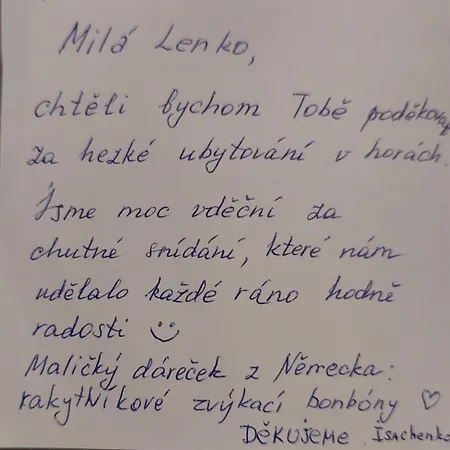 Milá Lenko,
chtěli bychom Tobě poděkovat
za hezké ubytování v horách.
Jsme moc vděční za
chutné snídání, které nám
udělalo každé ráno hodně
radosti ☺
Maličký dáreček z Německa:
rakytníkové zvýkací bonbóny ♡
DĚKUJEME Isachenko